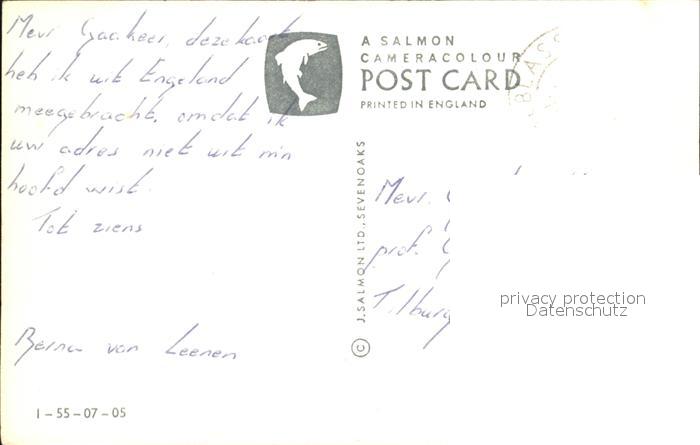 Mevr Gaakeer, deze kaart
heb ik uit Engeland
meegebracht, omdat ik
uw adres niet uit m'n
hoofd wist.
Tot ziens
Berna van Leenen
1 - 55 - 07 - 05
A SALMON
CAMERACOLOUR
POST CARD
PRINTED IN ENGLAND
© J. SALMON LTD., SEVENOAKS
Mevr.
prof.
Tilburg
privacy protection
Datenschutz